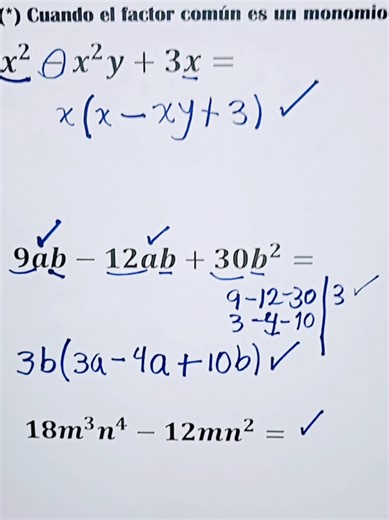 (*) Cuando el factor común es un monomio
x² - x²y + 3x =
x(x-xy+3) ✓
9ab − 12ab + 30b² =
9-12-30|3 ✓
3-4-10
3b(3a-4a+10b) ✓
18m³n⁴ − 12mn² = ✓